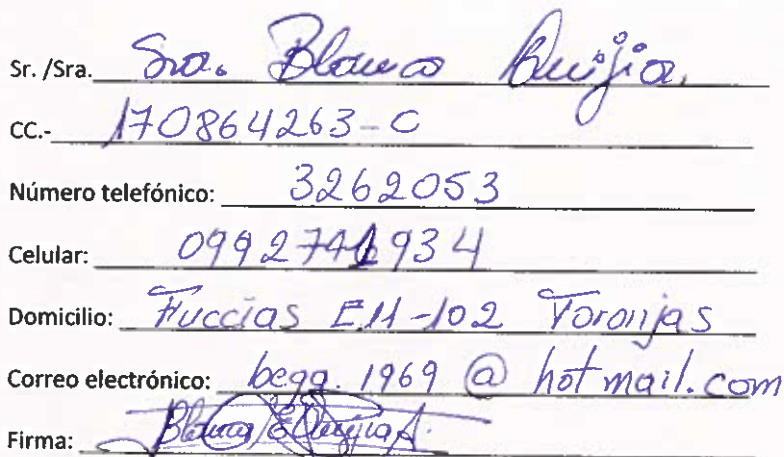 Sr. /Sra. Sra. Blanca Quijia.
CC.- 170864263-0
Número telefónico: 3262053
Celular: 0992741934
Domicilio: Fuccias E11-102 Toronjas
Correo electrónico: beqq.1969@hotmail.com
Firma: Blanca E Quijia A.